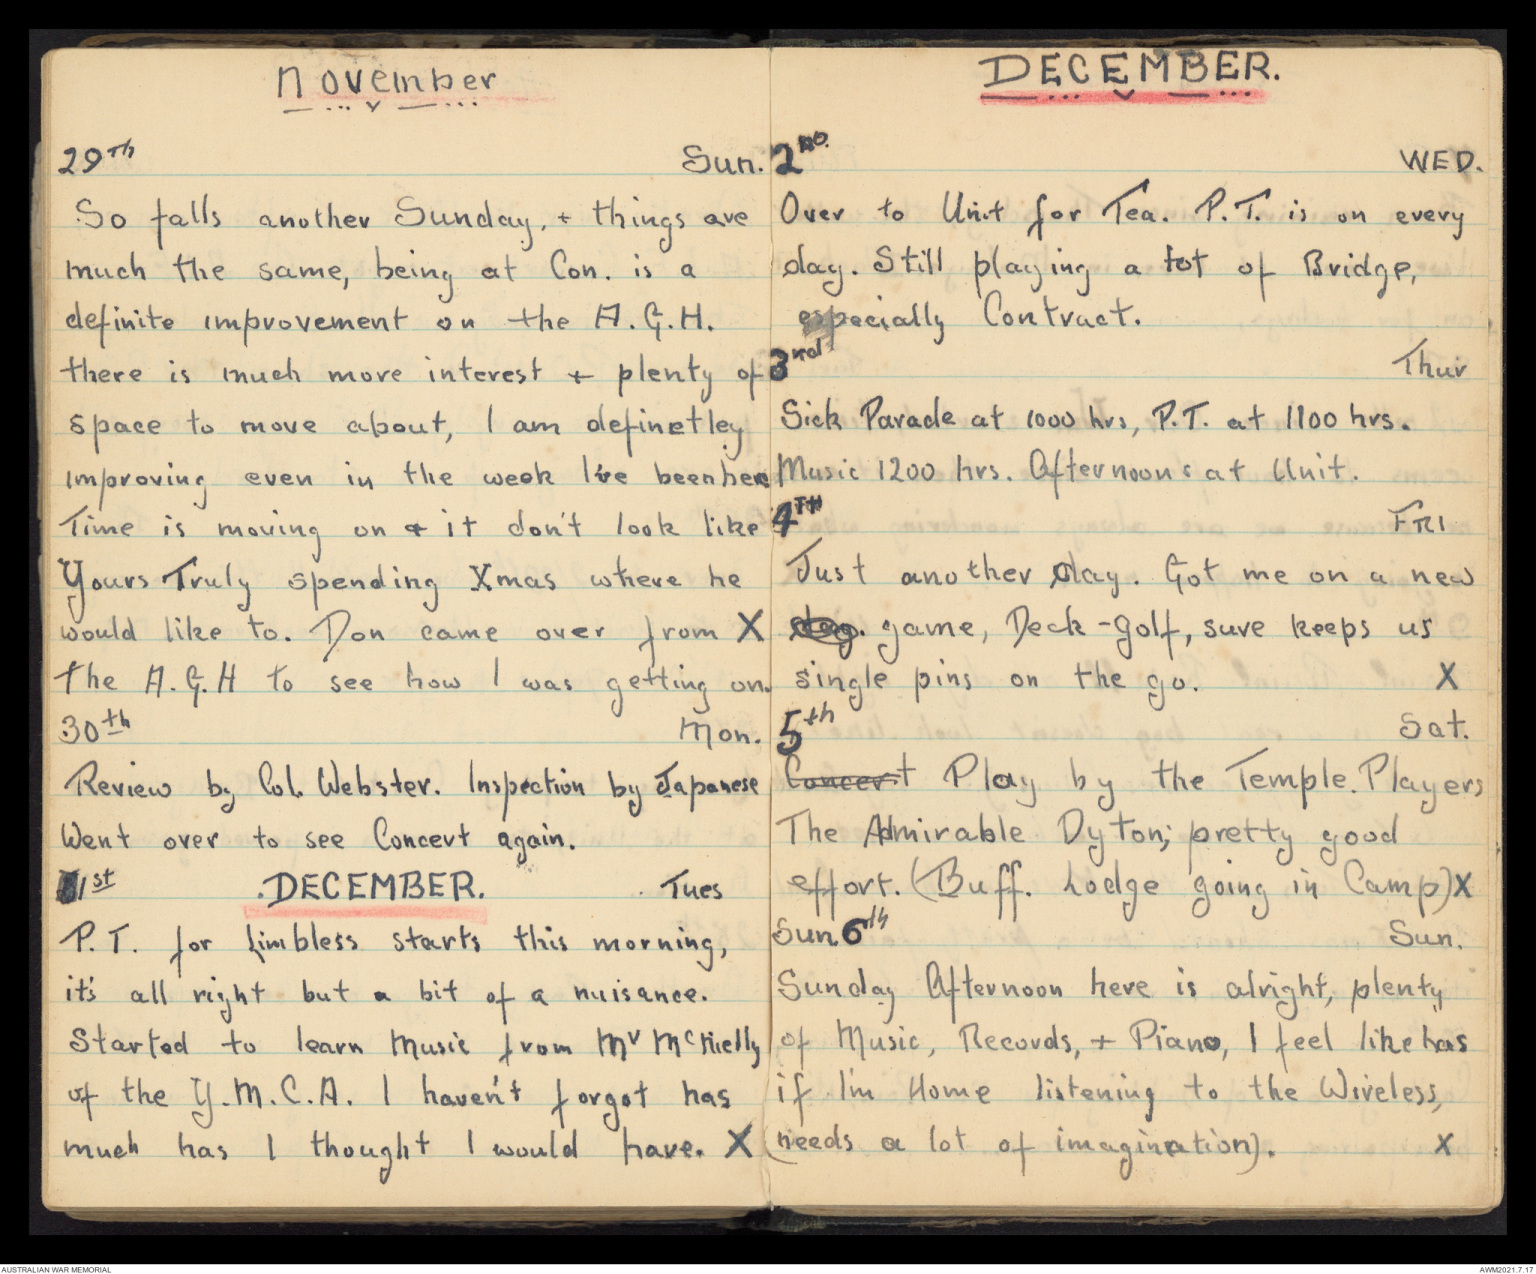 November
29th Sun.
So falls another Sunday, + things are
much the same, being at Con. is a
definite improvement on the A.G.H.
there is much more interest + plenty of
space to move about, I am definetley
improving even in the week I've been here
Time is moving on + it don't look like
Yours Truly spending Xmas where he
would like to. Don came over from X
the A.G.H to see how I was getting on.
30th Mon.
Review by Col. Webster. Inspection by Japanese
Went over to see Concert again.
1st DECEMBER. Tues
P.T. for limbless starts this morning,
it's all right but a bit of a nuisance.
Started to learn Music from Mr McNielly
of the Y.M.C.A. I haven't forgot has
much has I thought I would have. X
DECEMBER.
2nd WED.
Over to Unit for Tea. P.T. is on every
day. Still playing a lot of Bridge,
especially Contract.
3rd Thur
Sick Parade at 1000 hrs, P.T. at 1100 hrs.
Music 1200 hrs. Afternoons at Unit.
4TH FRI
Just another day. Got me on a new
game, Deck-golf, sure keeps us
single pins on the go. X
5th Sat.
Concert Play by the Temple Players
The Admirable Dyton; pretty good
effort. (Buff. Lodge going in Camp) X
Sun 6th Sun.
Sunday Afternoon here is alright, plenty
of Music, Records, + Piano, I feel like has
if I'm Home listening to the Wireless,
(needs a lot of imagination). X
AUSTRALIAN WAR MEMORIAL AWM2021.7.17